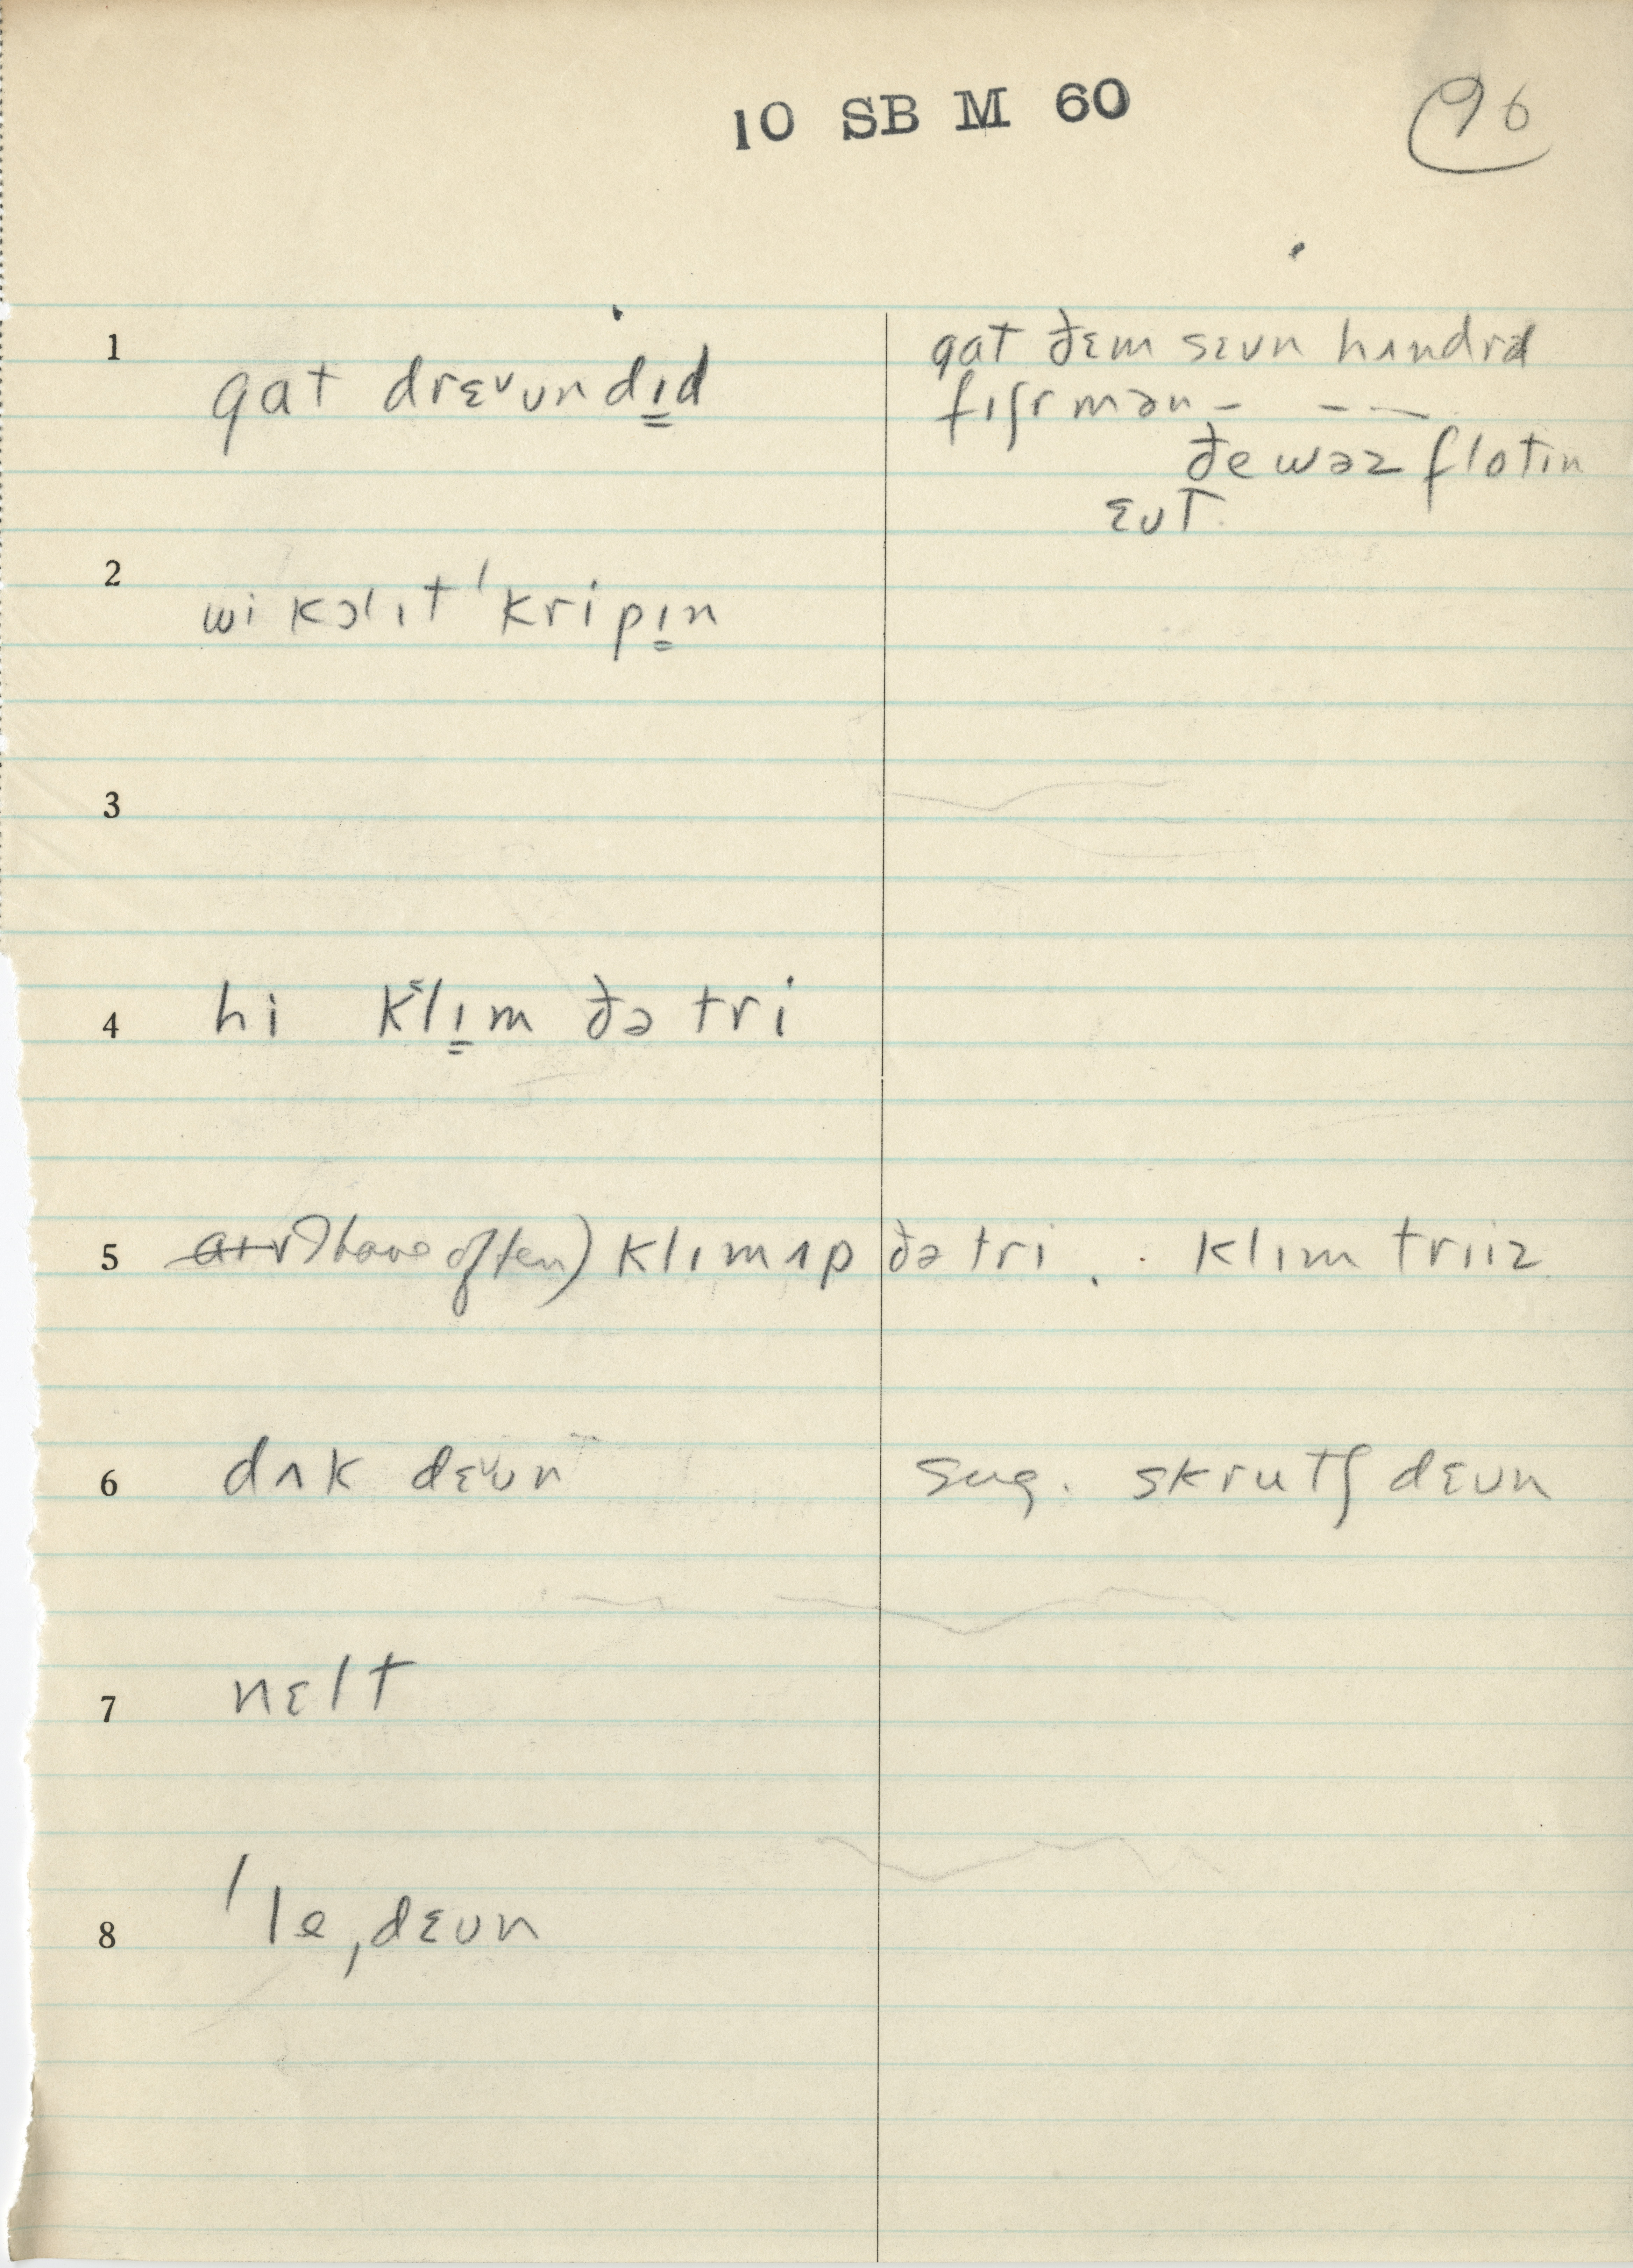 10 SB M 60
96
1 gat drɛᵛʊndɪ̳d
gat ðɛm sɛvn hʌndrəd
fɪʃrmən – – —
ðe wəz flotɪn
ɛʊt.
2 wi kɔl ɪt ˈkripɪ̳n
3
4 hi klɪ̳m ðə tri
5 (have often) klɪm ʌp ðə tri . . klɪm triiz
6 dʌk dɛᵛʊn sug. skrutʃ dɛʊn
7 nɛlt
8 ˈleˌdɛʊn